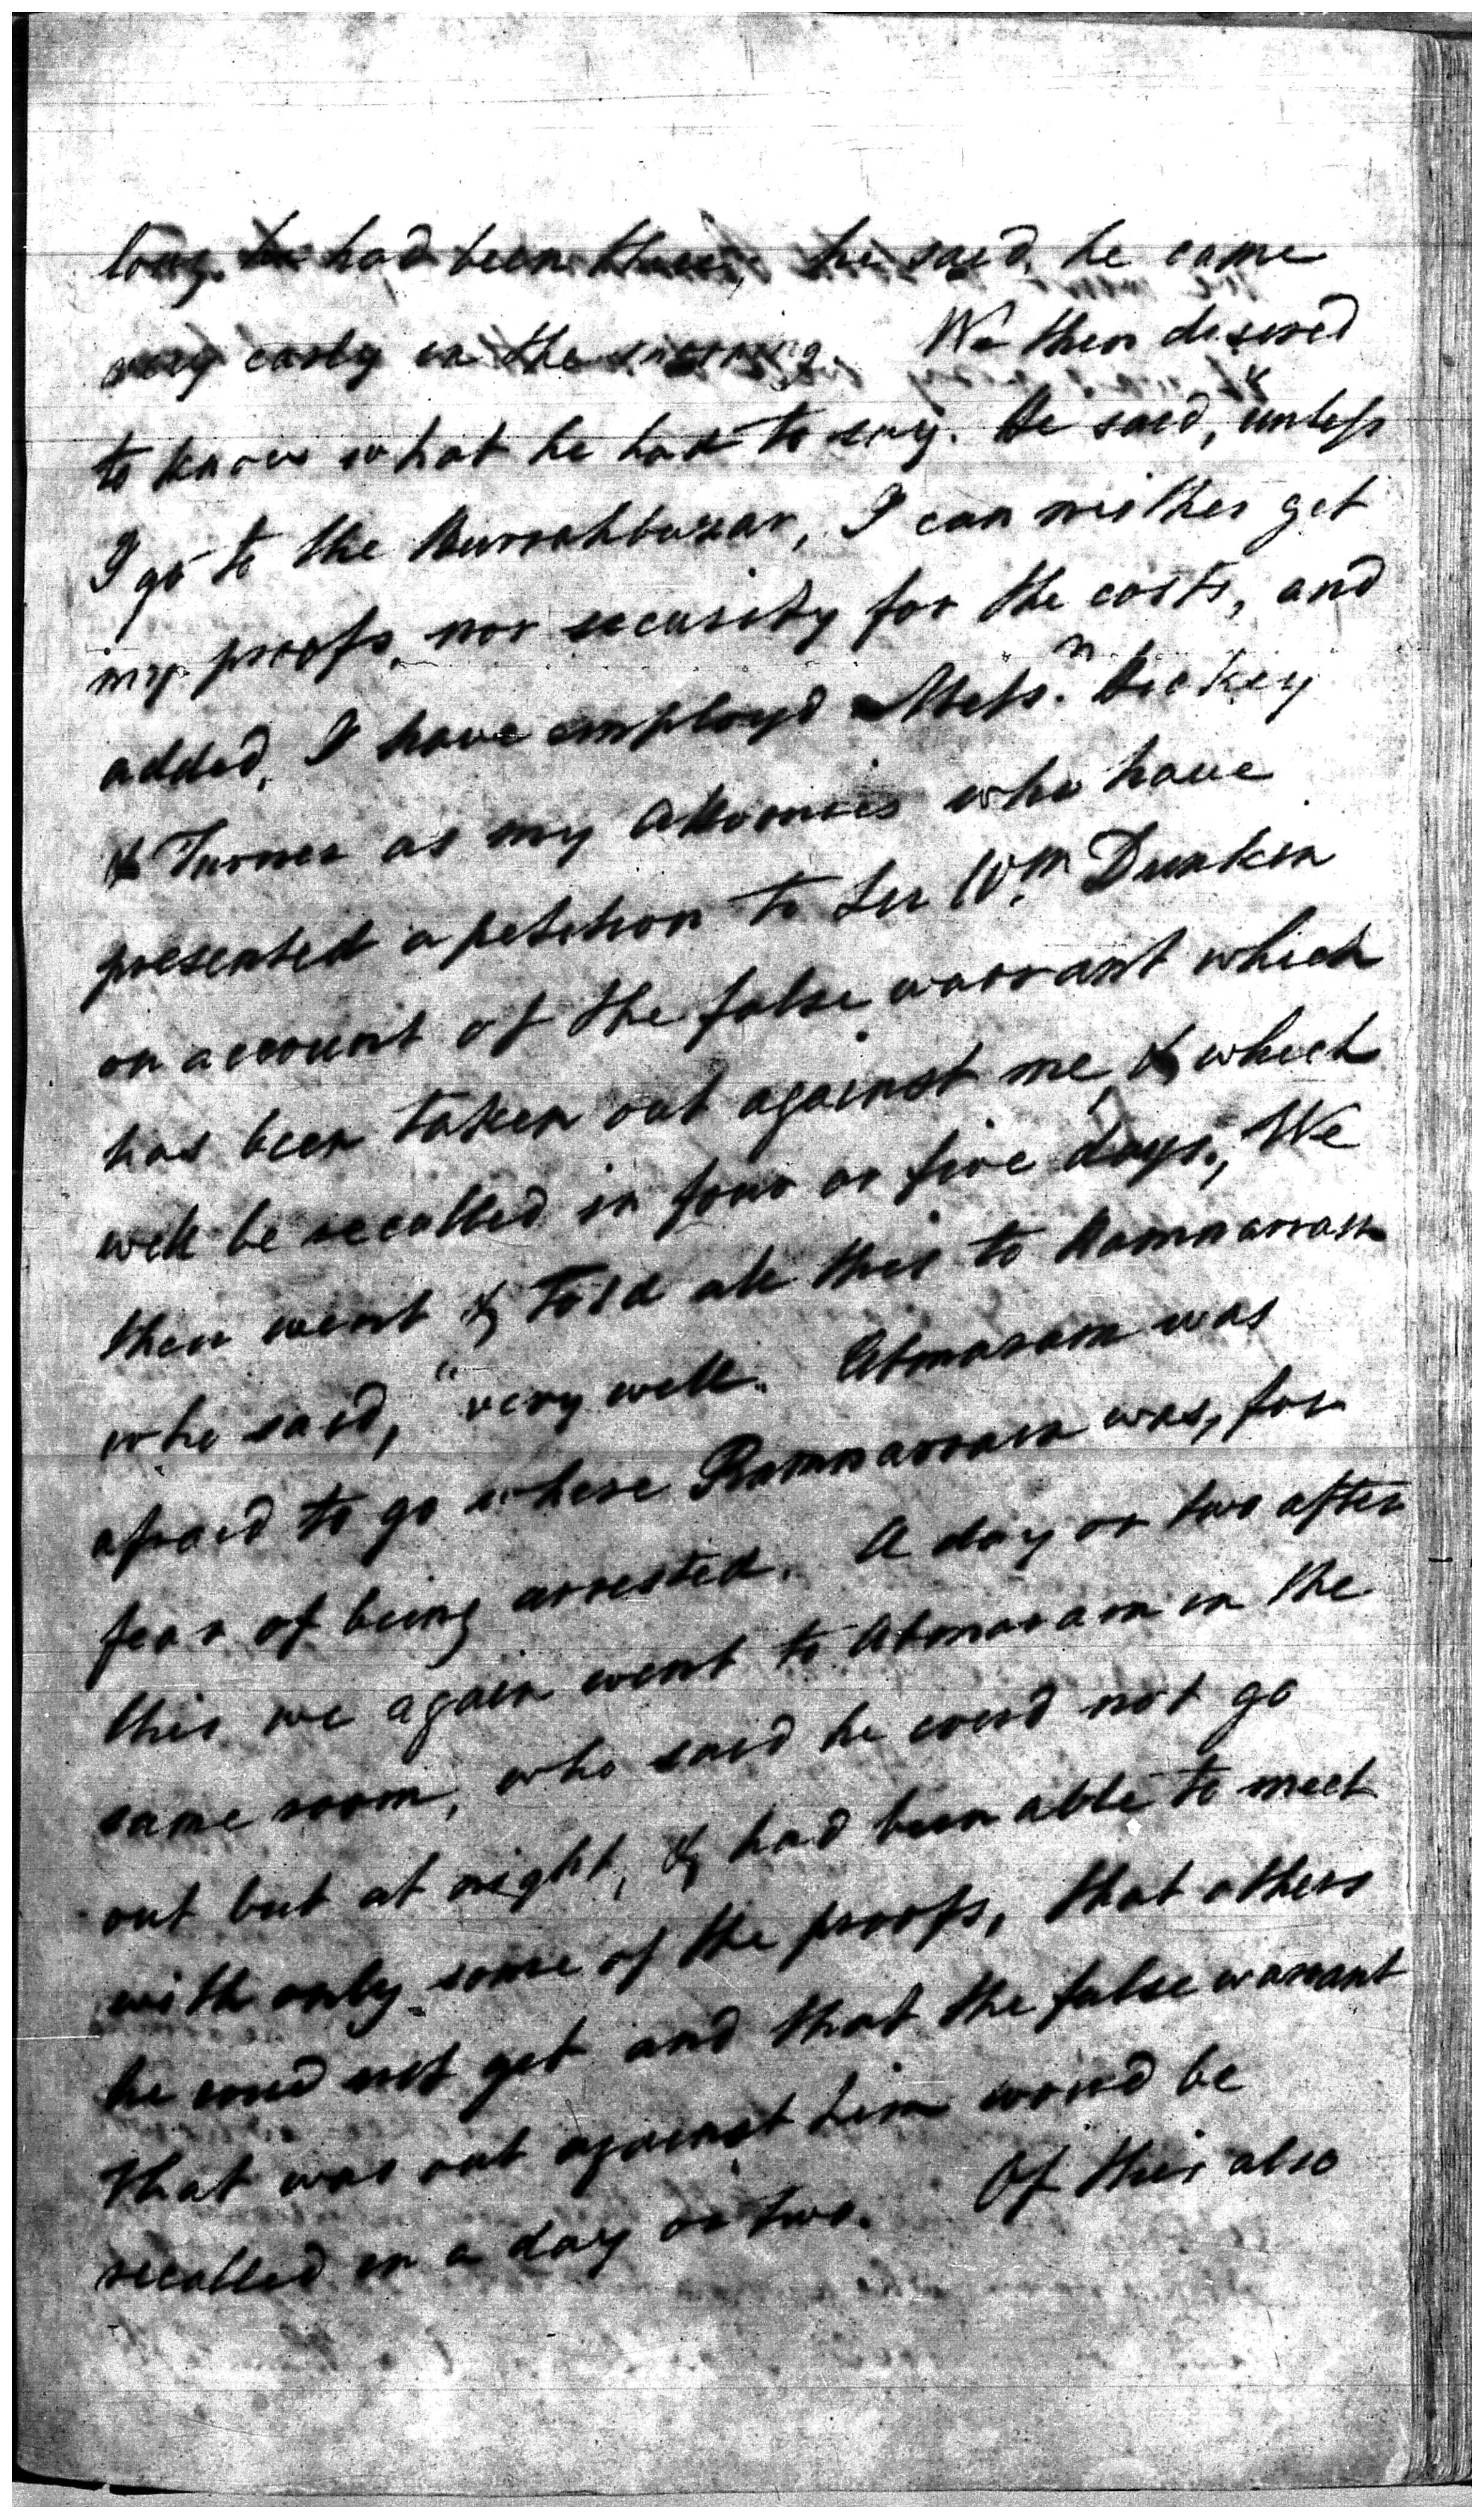 long he had been there, he said, he came
very early in the morning. We then desired
to know what he had to say. He said, unless
I go to the Burrahbuzar, I can neither get
my proofs, nor security for the costs, and
added, I have employd Mess.rs Hickey
& Turner as my Attornies who have
presented a petition to Sir Wm. Dunkin
on account of the false warrant which
has been taken out against me, & which
will be recalled in four or five days., We
then went & told all this to Ramnarrain
who said, "very well. Atmaram was
afraid to go where Ramnarrain was, for
fear of being arrested. A day or two after
this we again went to Atmaram in the
same room, who said he coud not go
out but at night, & had been able to meet
with only some of the proofs, that others
he coud not get and that the false warrant
that was out against him woud be
recalled in a day or two. Of this also